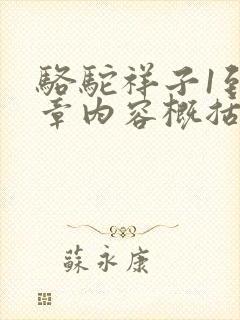 駱駝祥子1到
章内容概括
蘇永康